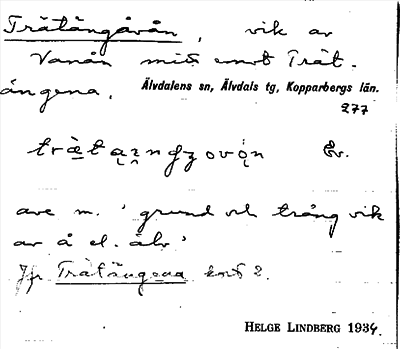 Trätångåvån, vik av
Vanån mitt emot Trät-
ångena.
Älvdalens sn, Älvdals tg, Kopparbergs län.
277
Ev.
ave m. 'grund och trång vik
av å el. älv'
Jfr Trätångena kort 2.
HELGE LINDBERG 1934.